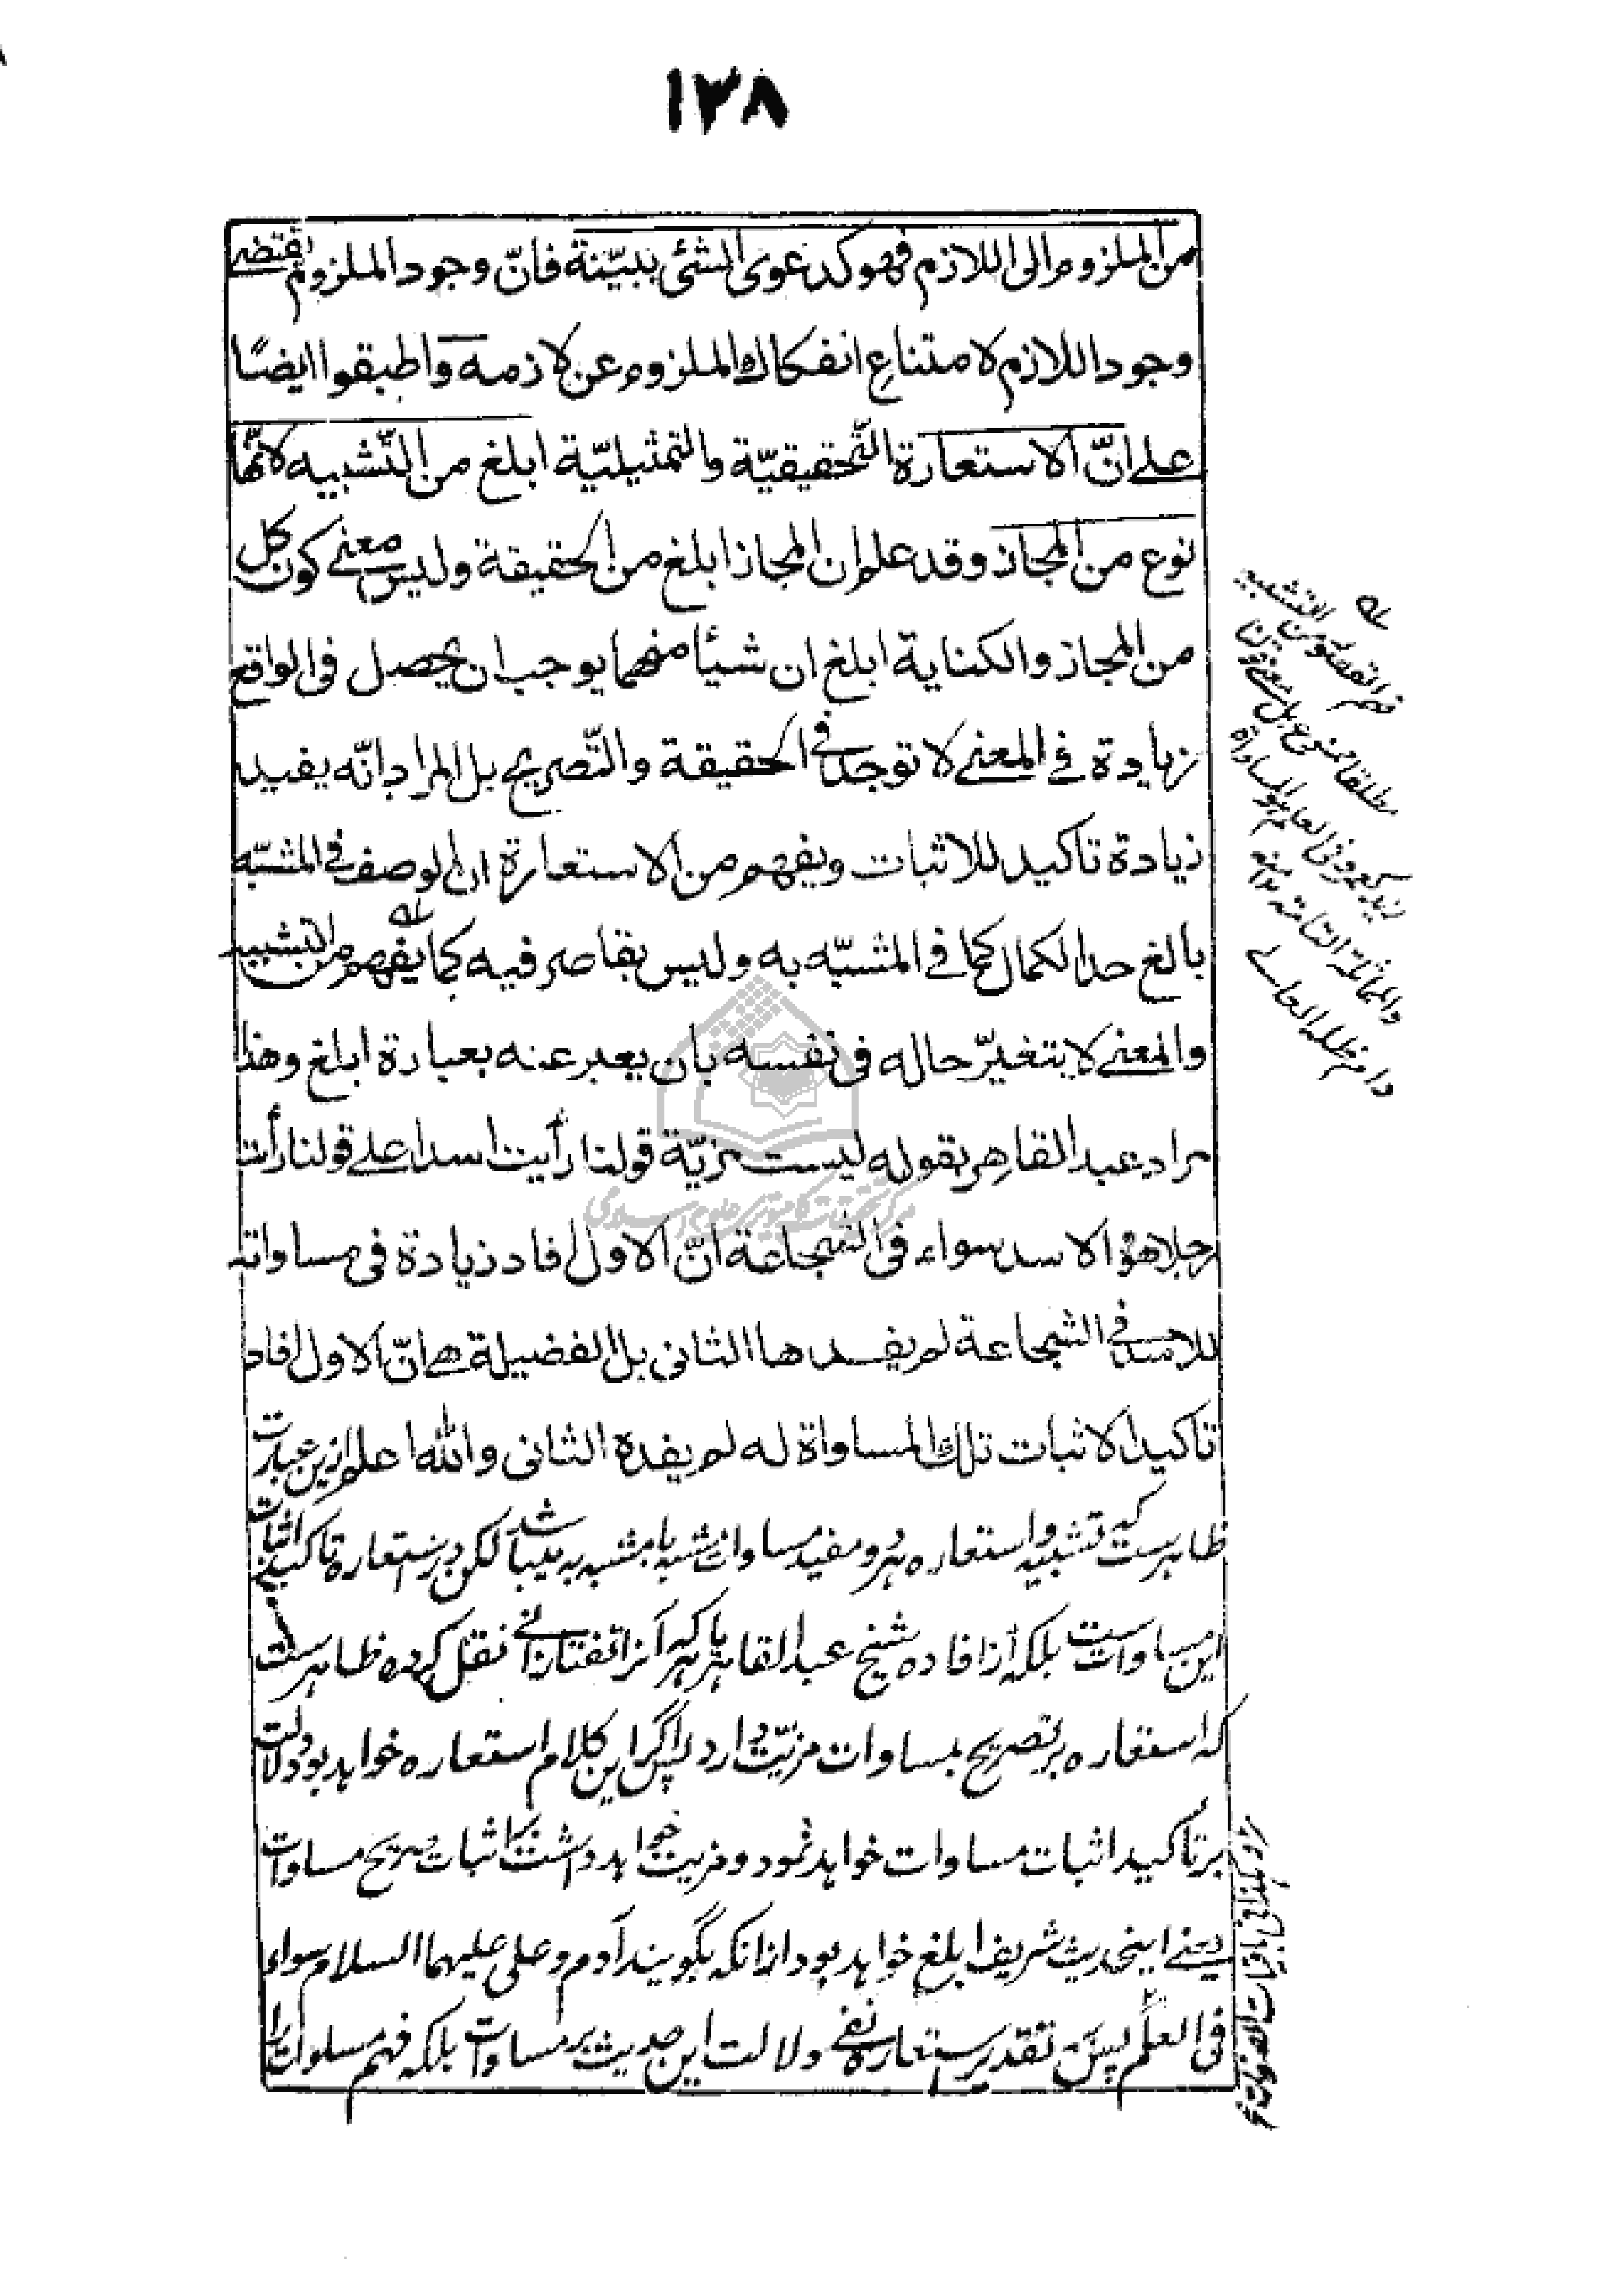 ۱۳۸
من الملزوم الى اللازم فهو كدعوى الشئ ببيّنة فانّ وجود الملزوم يقتضى
وجود اللازم لامتناع انفكاك الملزوم عن لازمه واطبقوا ايضًا
على انّ الاستعارة التّحقيقيّة والتمثيليّة ابلغ من التّشبيه لانّها
نوع من المجاز وقد علم ان المجاز ابلغ من الحقيقة وليس معنى كون كل
من المجاز والكناية ابلغ ان شيئا منهما يوجب ان يحصل فى الواقع
زيادة فى المعنى لا توجد فى الحقيقة والتّصريح بل المراد انّه يفيد
زيادة تاكيد للاثبات ويفهم من الاستعارة ان الوصف فى المشبّه
بالغ حد الكمال كما فى المشبّه به وليس بقاصر فيه كما يفهم من التشبيه
والمعنى لا يتغيّر حاله فى نفسه بان يعبر عنه بعبارة ابلغ وهذا
مراد عبد القاهر بقوله ليست مزيّة قولنا رأيت اسدا على قولنا رأيت
رجلا هو الاسد سواء فى الشجاعة انّ الاول افاد زيادة فى مساواته
للاسد فى الشجاعة لم يفدها الثانى بل الفضيلة هى انّ الاول افاد
تاكيدا لاثبات تلك المساواة له لم يفده الثانى والله اعلم ازين عبارت
ظاهرست كه تشبيه واستعاره هر دو مفيد مساوات مشبه با مشبه به ميباشد لكن در استعاره تاكيد اثبات
اين مساواتست بلكه از افاده شيخ عبد القاهر كه آنرا تفتازانى نقل كرده ظاهرست
كه استعاره بر تصريح بمساوات مزيّت دارد پس اگر اين كلام استعاره خواهد بود دلالت
بر تاكيد اثبات مساوات خواهد نمود و مزيت خواهد داشت بر اثبات صريح مساوات
يعنى اينحديث شريف ابلغ خواهد بود از انكه بگويند آدم و على عليهما السلام سواء
فى العلم پس تقدير استعاره نفى دلالت اين حديث بر مساوات بلكه فهم مساوات را
فهم القصور من التشبيه
مطلقا ممنوع بل معنى قولنا
زيد كعمرو فى العلم هو المساواة
والمماثلة التامة ۱۲ منه
دام ظله العالى
مركز تحقيقات كامپيوترى علوم اسلامى